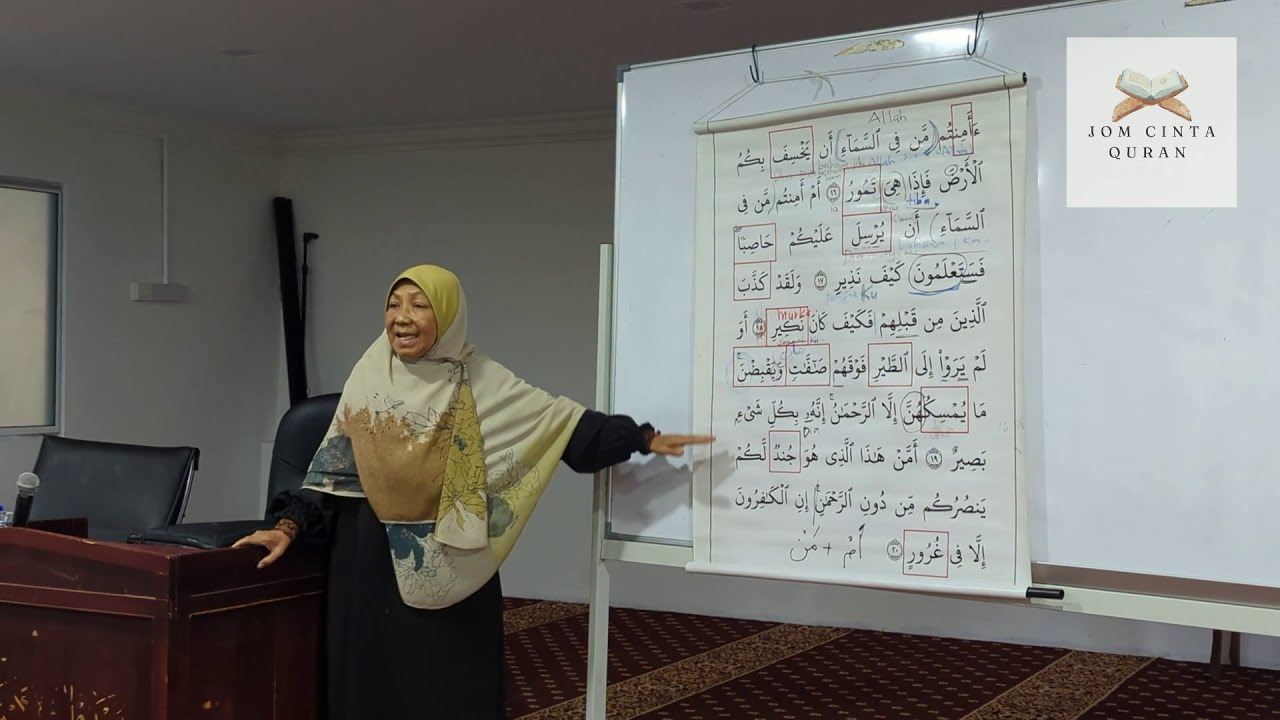 JOM CINTA
QURAN
Allah
ءَأَمِنتُم مَّن فِى ٱلسَّمَآءِ أَن يَخْسِفَ بِكُمُ
ٱلْأَرْضَ فَإِذَا هِىَ تَمُورُ ١٦ أَمْ أَمِنتُم مَّن فِى
ٱلسَّمَآءِ أَن يُرْسِلَ عَلَيْكُمْ حَاصِبًا
فَسَتَعْلَمُونَ كَيْفَ نَذِيرِ ١٧ وَلَقَدْ كَذَّبَ
Ku
ٱلَّذِينَ مِن قَبْلِهِمْ فَكَيْفَ كَانَ نَكِيرِ ١٨ أَوَ
Murka
لَمْ يَرَوْا۟ إِلَى ٱلطَّيْرِ فَوْقَهُمْ صَٰٓفَّٰتٍ وَيَقْبِضْنَ
مَا يُمْسِكُهُنَّ إِلَّا ٱلرَّحْمَٰنُ إِنَّهُۥ بِكُلِّ شَىْءٍۭ
Dia
بَصِيرٌ ١٩ أَمَّنْ هَٰذَا ٱلَّذِى هُوَ جُندٌ لَّكُمْ
يَنصُرُكُم مِّن دُونِ ٱلرَّحْمَٰنِ إِنِ ٱلْكَٰفِرُونَ
إِلَّا فِى غُرُورٍ ٢٠
أَمْ + مَنْ